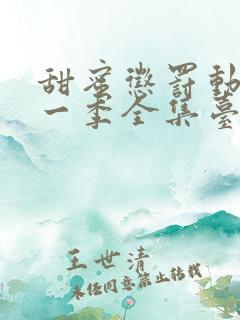 甜蜜懲罰動
一季全集臺
王世清
未经同意禁止转载